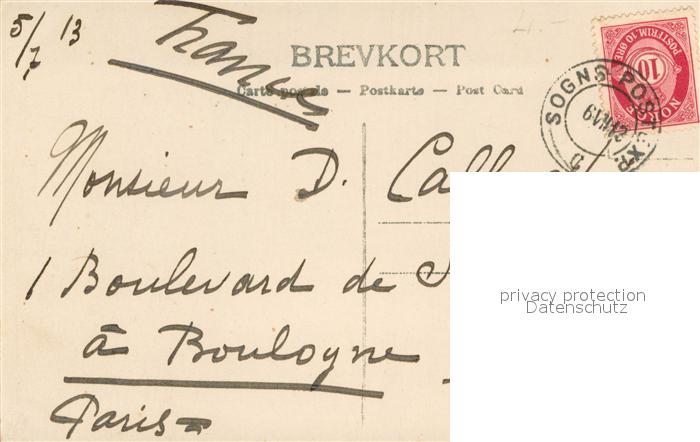 5/7 13
France
BREVKORT
Carte postale — Postkarte — Post Card
POSTFRIM. 10 ØRE
10
NORGE
SOGNS POST
Monsieur D.
1 Boulevard de
à Boulogne
Paris
privacy protection
Datenschutz